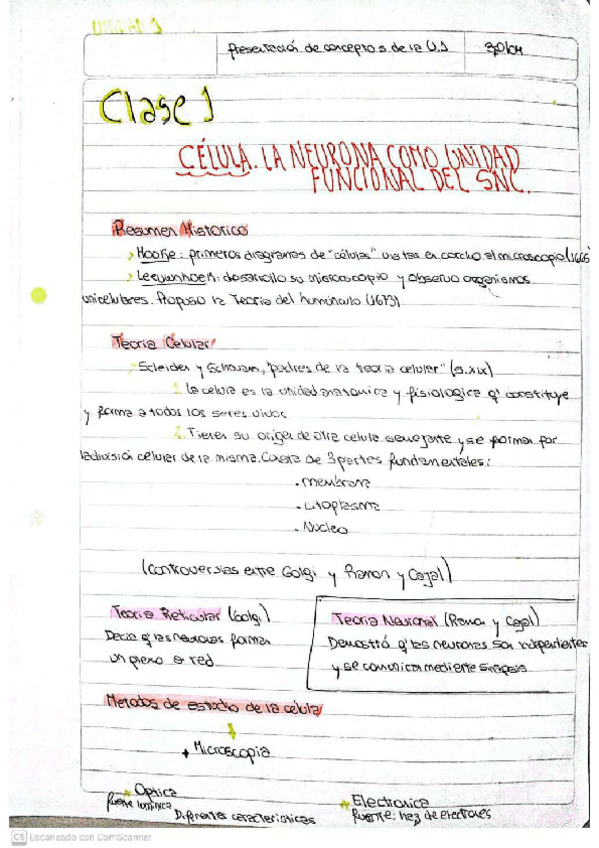 UNIDAD 1
Presentación de conceptos de la U.1
30/04
Clase 1
CÉLULA. LA NEURONA COMO UNIDAD
FUNCIONAL DEL SNC.
Resumen Historico
Hooke: primeros diagramas de "células" vistas en corcho al microscopio (1665)
Leeuwnhoen: desarrollo su microscopio y observo organismos
unicelulares. Propuso la Teoria del humúnculo (1673)
Teoria Celular
Scleiden y Schwann, "padres de la teoria celular" (s.XIX)
1. La celula es la unidad anatomica y fisiologica q' constituye
y forma a todos los seres vivos
2. Tienen su origen de otra celula semejante y se forman por
la división celular de la misma. Consta de 3 partes fundamentales:
• membrana
• citoplasma
• Nucleo
(controversias entre Golgi y Ramon y Cajal)
Teoria Reticular (Golgi)
Decia q' las neuronas forman
un plexo o red
Teoria Neuronal (Ramon y Cajal)
Demostró q' las neuronas son independientes
y se comunican mediante sinapsis
Metodos de estudio de la célula
+ Microscopia
Optica
fuente luminica
Diferentes caracteristicas
Electronica
fuente: haz de electrones
CS Escaneado con CamScanner